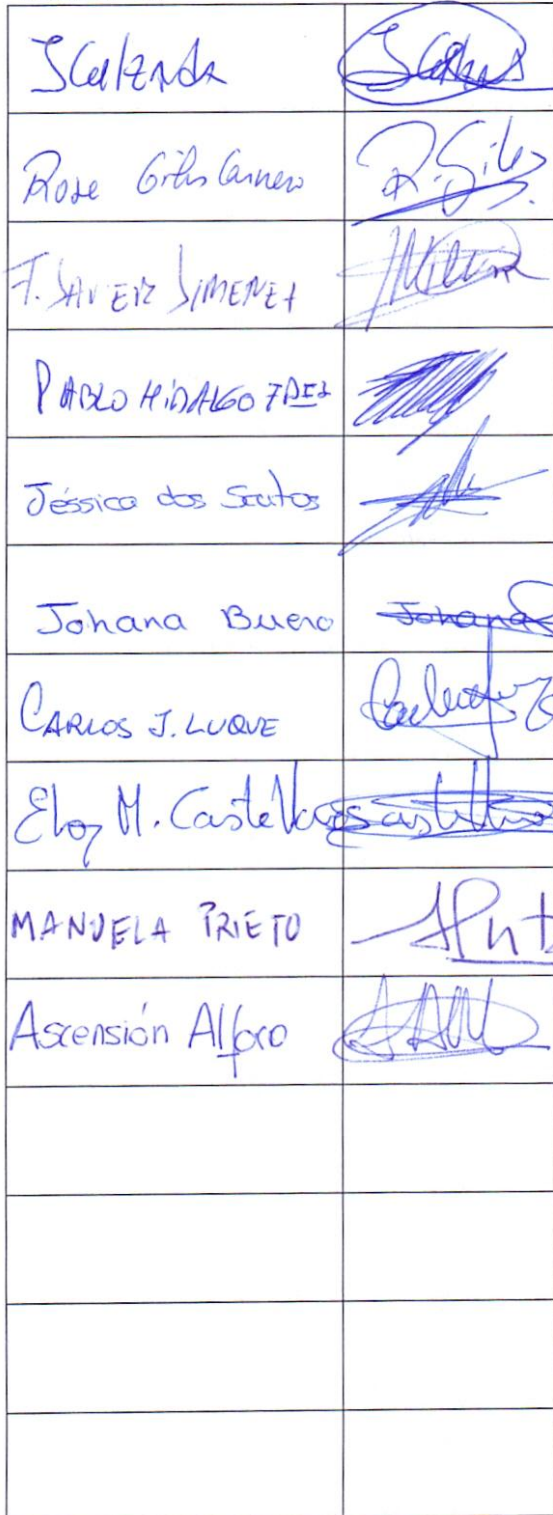 JCalzada
Rosa Giles Carnero R. Giles
F. JAVIER JIMENEZ
PABLO HIDALGO FDEZ
Jéssica dos Santos
Johana Bueno Johana
CARLOS J. LUQUE
Eloy M. Castellanos Castellanos
MANUELA PRIETO
Ascensión Alfaro